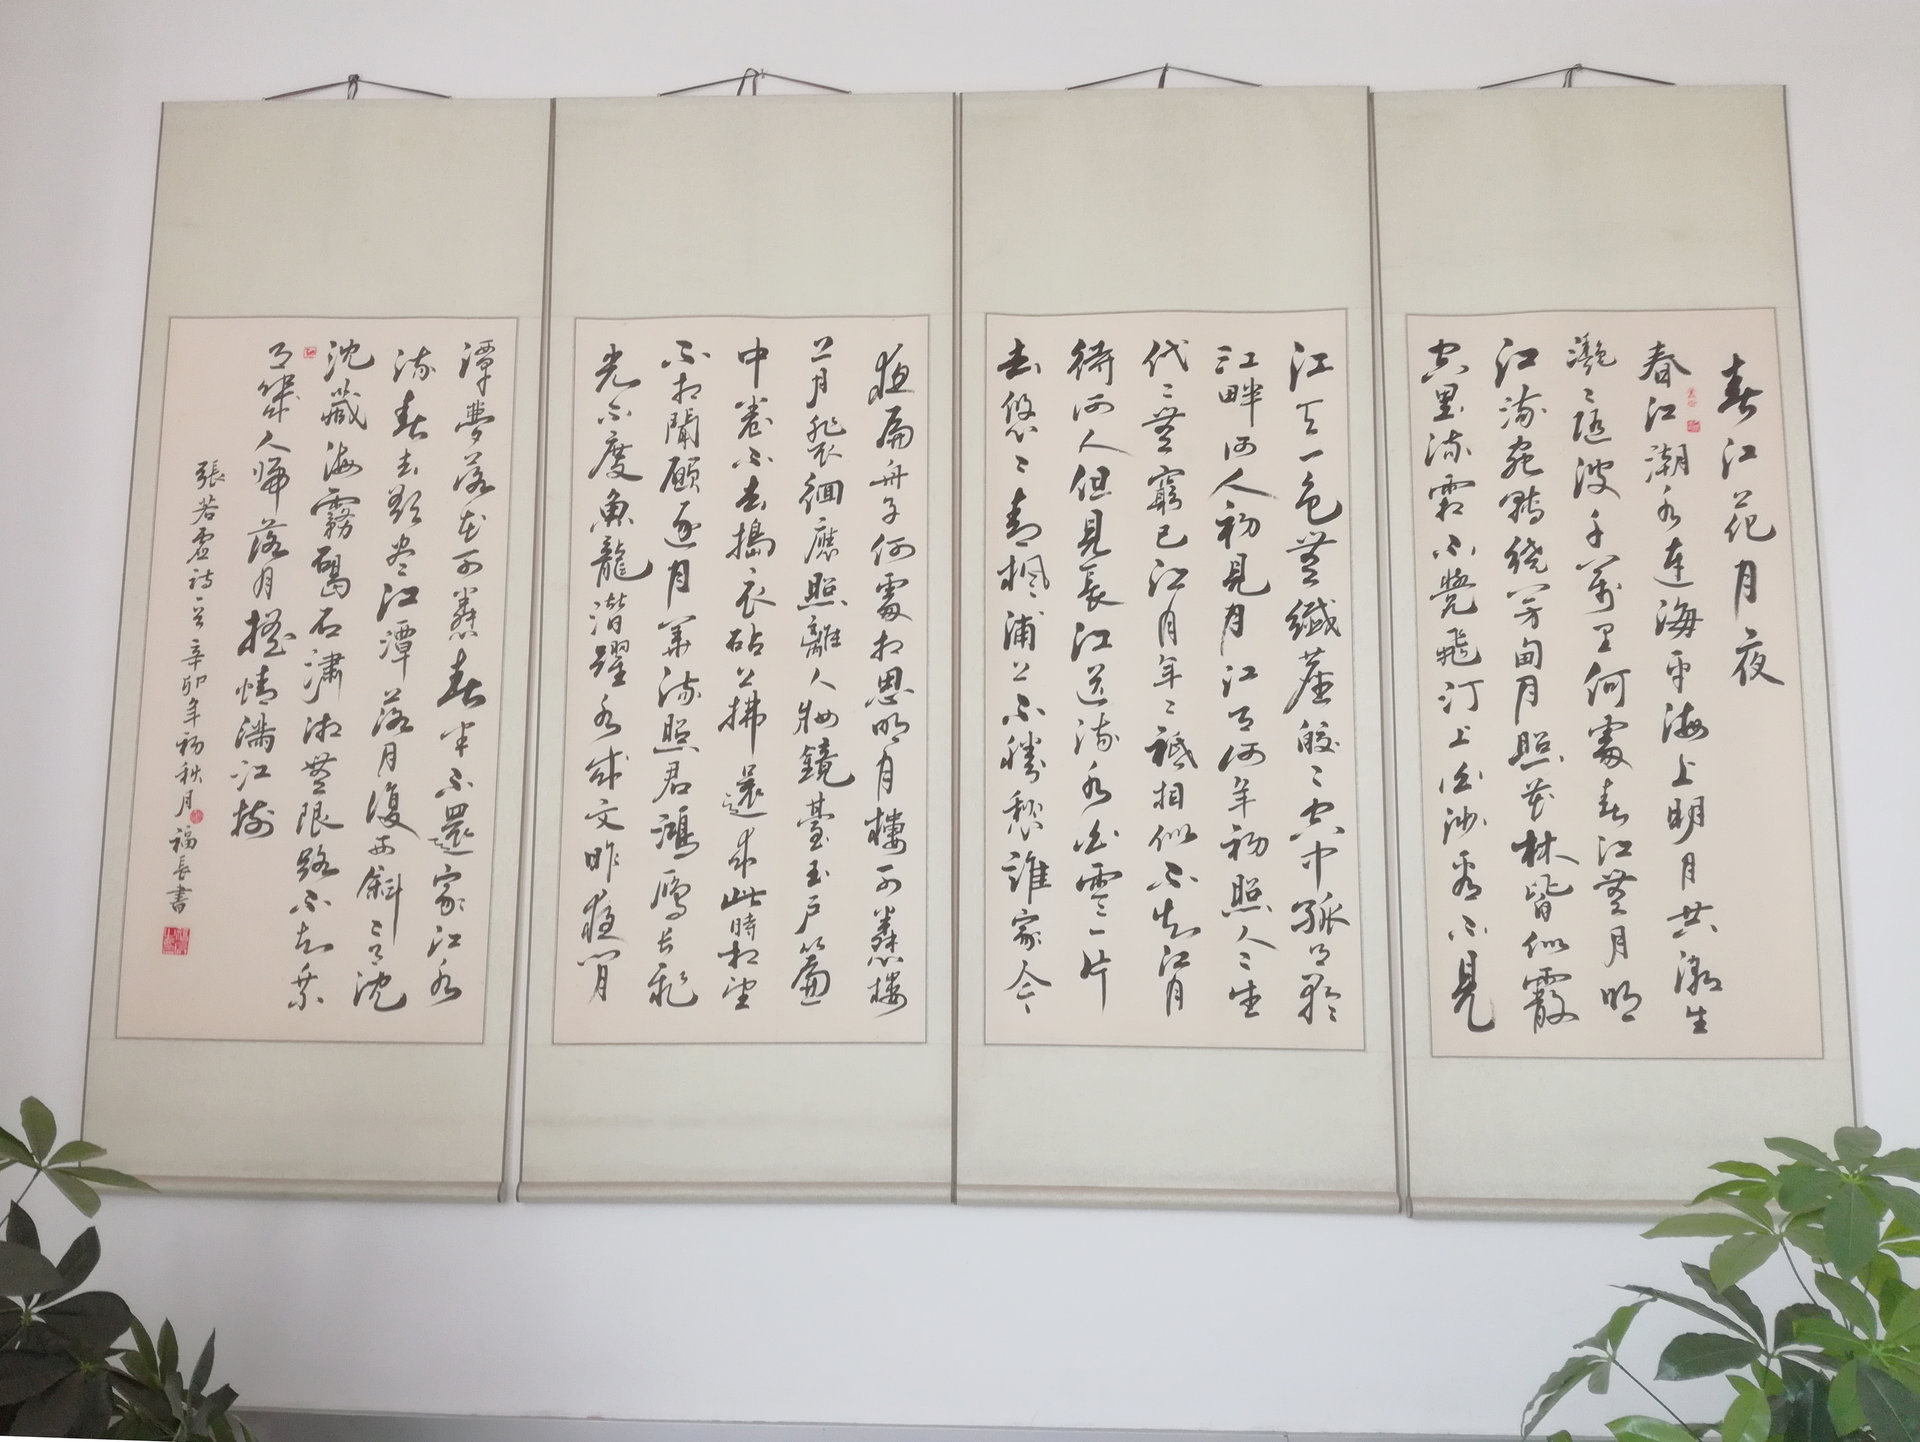 春江花月夜
春江潮水連海平海上明月共潮生
灩〻隨波千萬里何處春江無月明
江流宛轉繞芳甸月照花林皆似霰
空里流霜不覺飛汀上白沙看不見
江天一色無纖塵皎〻空中孤月輪
江畔何人初見月江月何年初照人〻生
代〻無窮已江月年〻祗相似不知江月
待何人但見長江送流水白雲一片
去悠〻青楓浦上不勝愁誰家今
夜扁舟子何處相思明月樓可憐樓
上月裴徊應照離人妝鏡臺玉戶簾
中卷不去搗衣砧上拂還來此時相望
不相聞願逐月華流照君鴻雁長飛
光不度魚龍潛躍水成文昨夜閒
潭夢落花可憐春半不還家江水
流春去欲盡江潭落月復西斜〻月沈
沈藏海霧碣石瀟湘無限路不知乘
月幾人歸落月搖情滿江樹
張若虛詩一首辛卯年初秋月福長書